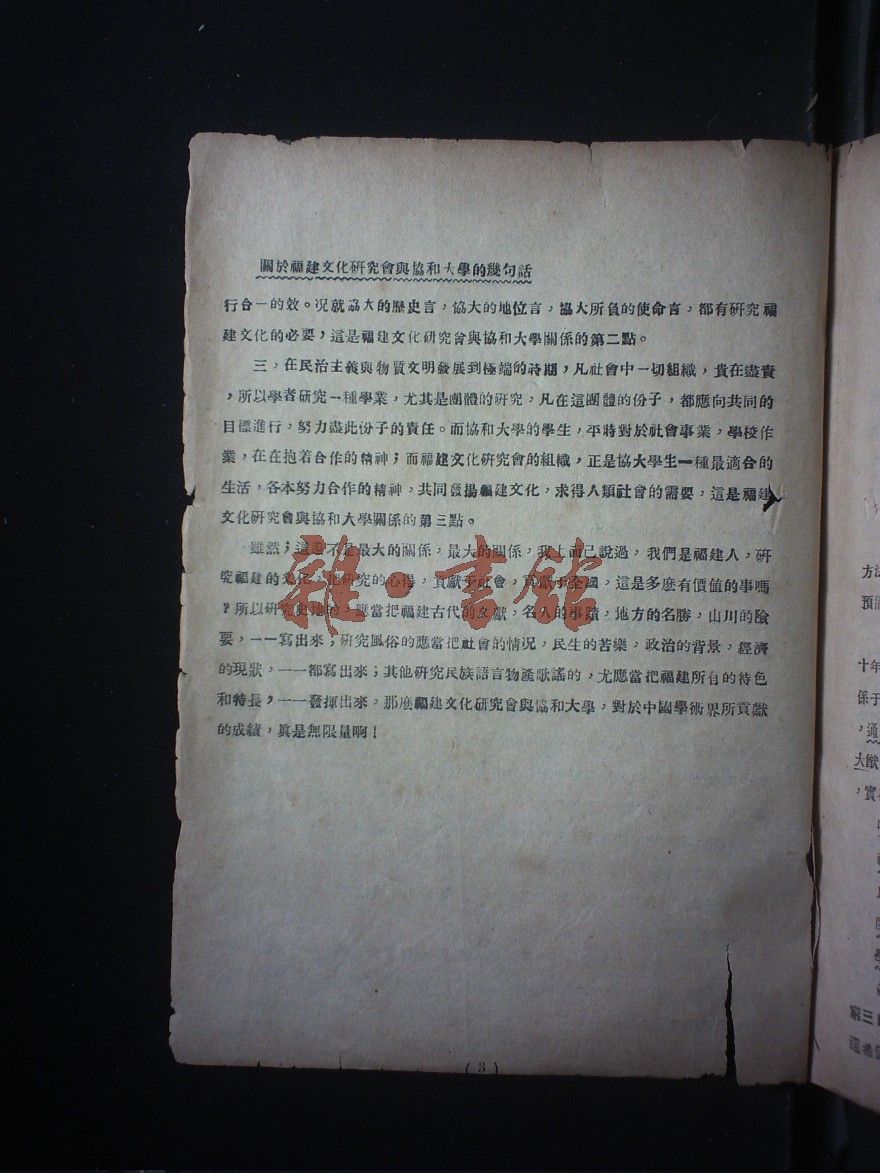 關於福建文化硏究會與協和大學的幾句話
行合一的效。况就協大的歷史言，協大的地位言，協大所負的使命言，都有硏究福
建文化的必要，這是福建文化硏究會與協和大學關係的第二點。
三，在民治主義與物質文明發展到極端的時期，凡社會中一切組織，貴在盡責
，所以學者硏究一種學業，尤其是團體的硏究，凡在這團體的份子，都應向共同的
目標進行，努力盡此份子的責任。而協和大學的學生，平時對於社會事業，學校作
業，在在抱着合作的精神；而福建文化硏究會的組織，正是協大學生一種最適合的
生活，各本努力合作的精神，共同發揚福建文化，求得人類社會的需要，這是福建
文化硏究會與協和大學關係的第三點。
雖然；這還不是最大的關係，最大的關係，我上面已說過，我們是福建人，硏
究福建的文化，把硏究的心得，貢獻于社會，貢獻于全國，這是多麽有價值的事嗎
？所以硏究史地的，應當把福建古代的文獻，名人的事蹟，地方的名勝，山川的險
要，一一寫出來；硏究風俗的應當把社會的情况，民生的苦樂，政治的背景，經濟
的現狀，一一都寫出來；其他硏究民族語言物產歌謠的，尤應當把福建所有的特色
和特長，一一發揮出來，那麽福建文化硏究會與協和大學，對於中國學術界所貢獻
的成績，眞是無限量啊！
(3)
雜·書館
方法
預
十年
係于
，通
大獻
，實
第三
還希